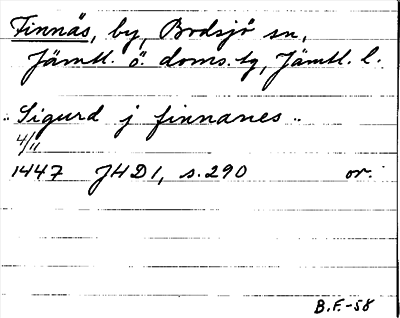 Finnäs, by, Bodsjö sn,
Jämtl. ö. doms.tg, Jämtl. l.
"Sigurd j finnanes"
4/11
1447 JHD1, s.290 or.
B.F.-58